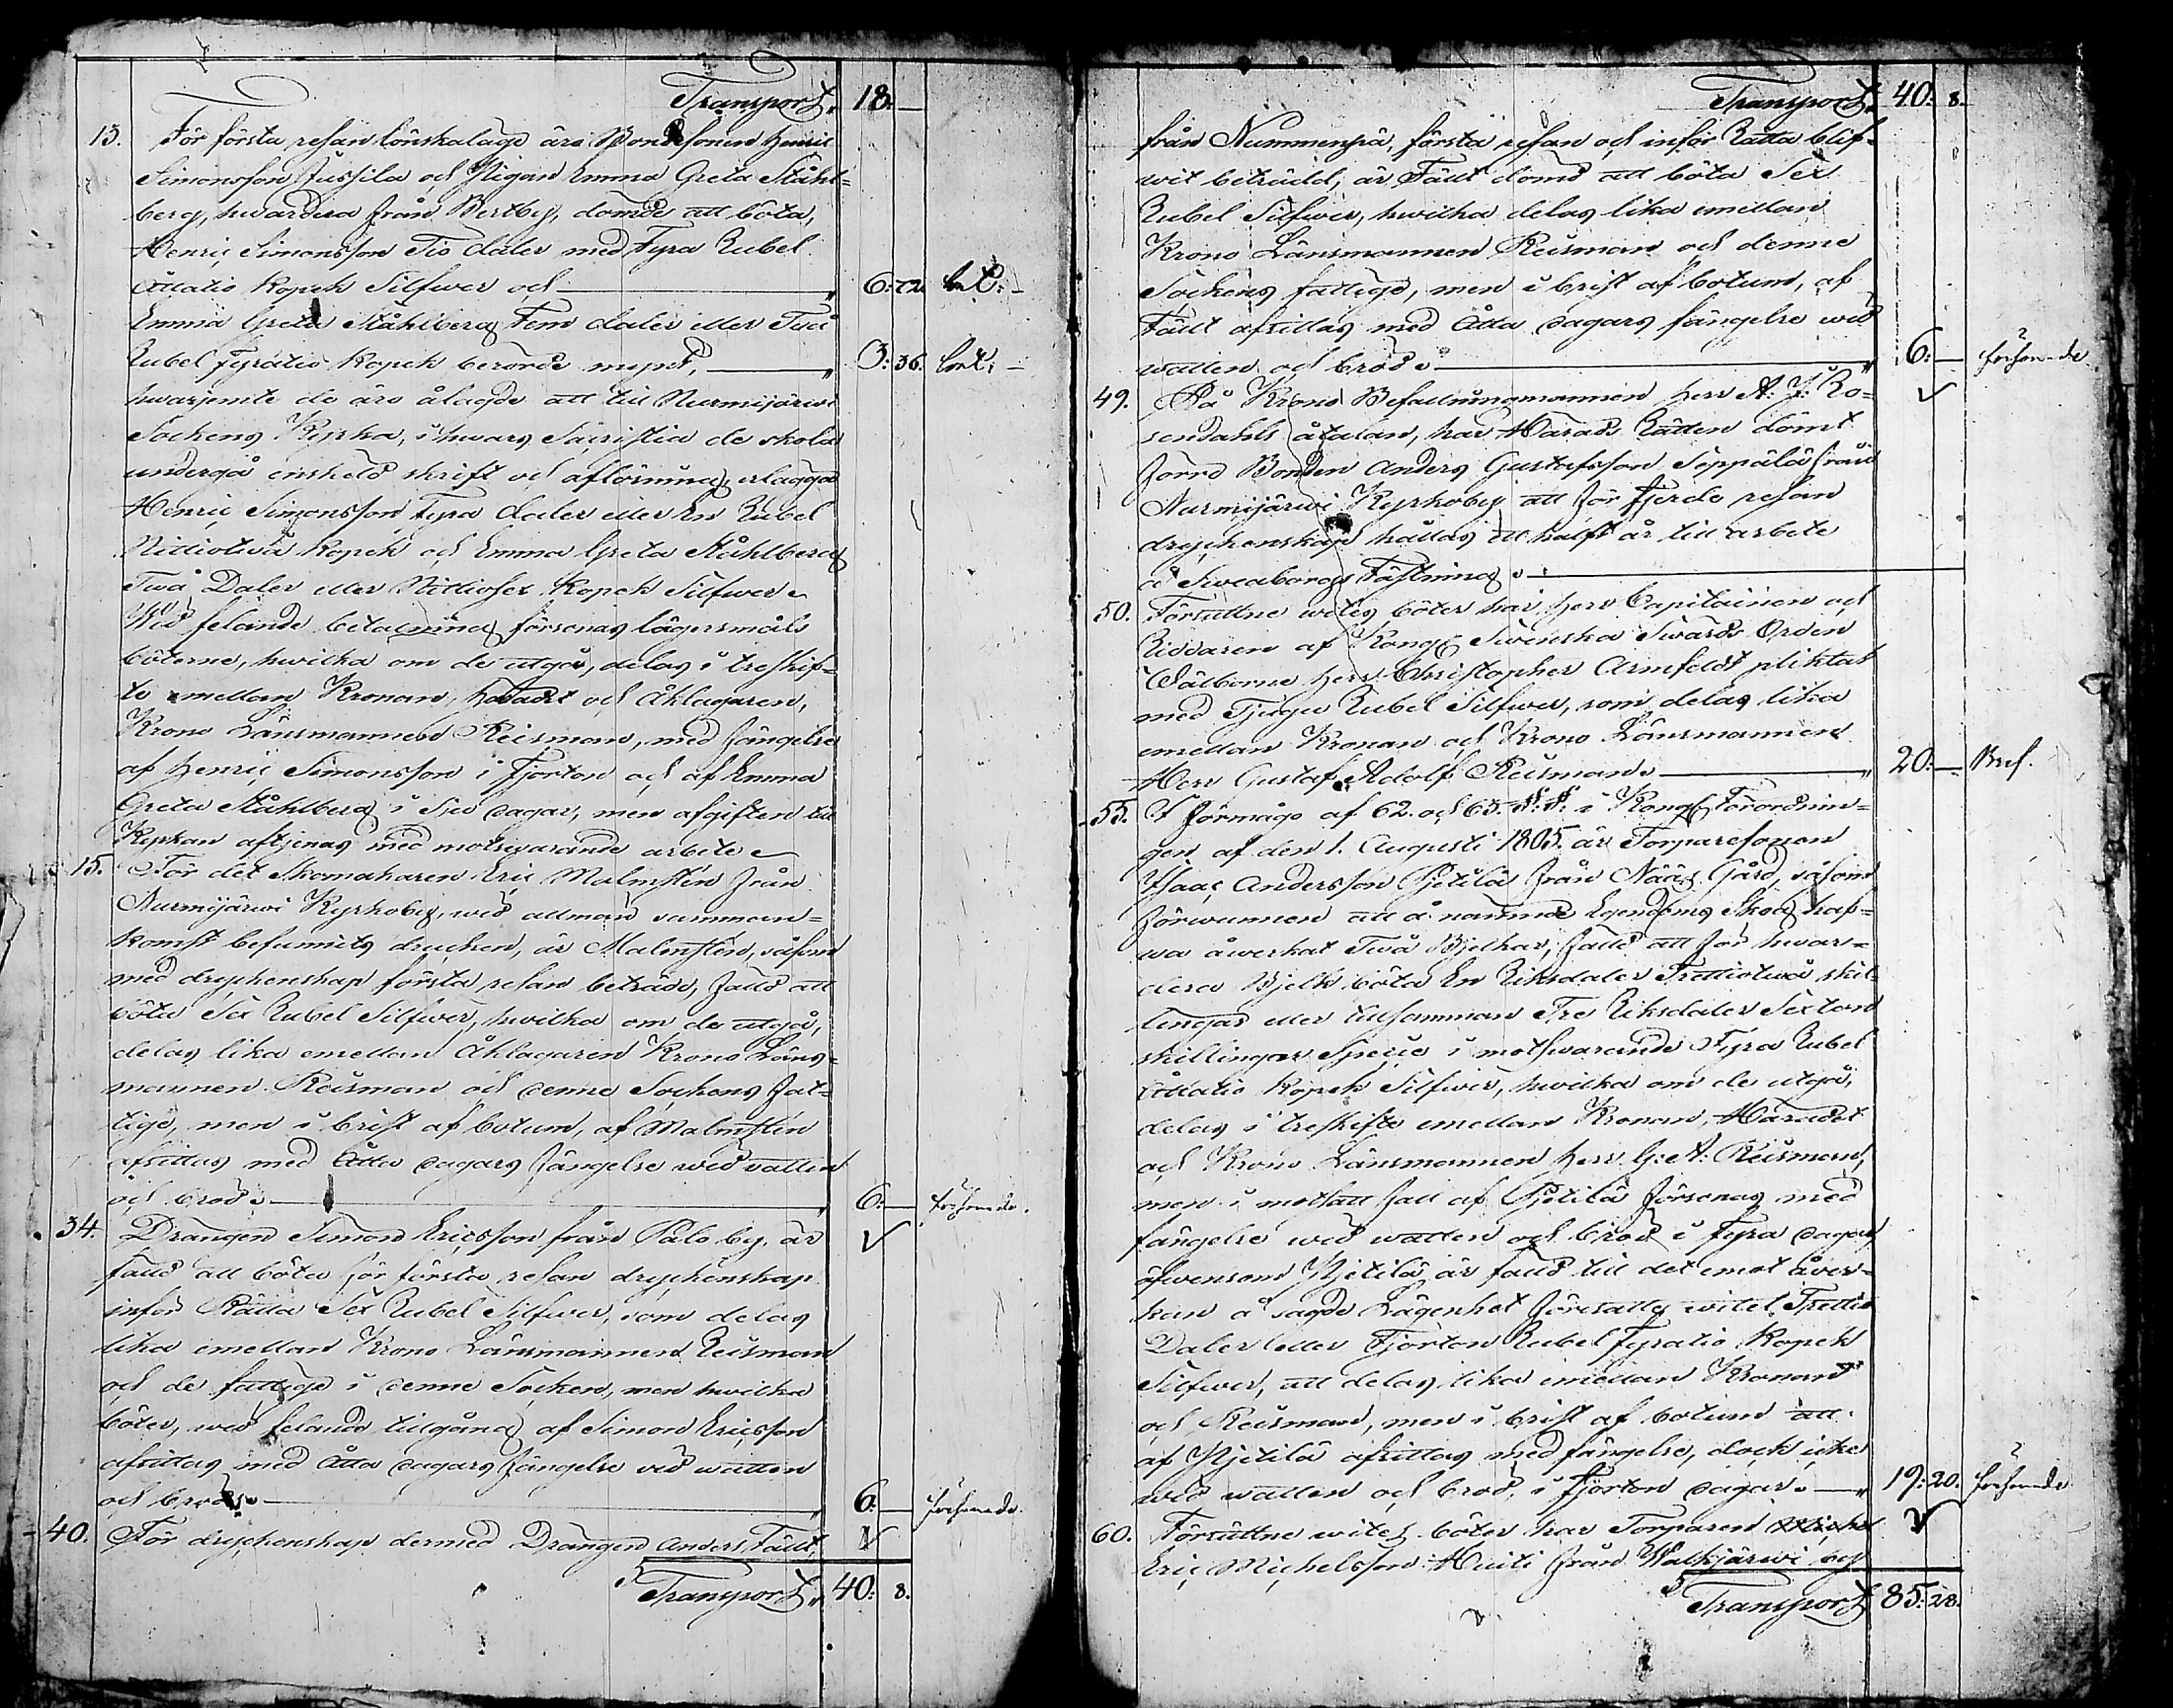 Transport, 18: —
13. För första resan lönskaläge äro Bondesonen Henric
Simonsson Jussila och Pigan Emma Greta Ståhl=
berg, hwardera från Bertby, dömde att böta,
Henric Simonsson Tio daler med Fyra Rubel
Åttatio Kopek Silfwer och — " 6: 72
Emma Greta Ståhlberg Fem daler eller Två
Rubel Fyratio Kopek berörde mynt, — " 3: 36.
hwarjemte de äro ålagde att till Nurmijärwi
Sockens Kyrka, i hwars Sacristia de skola
undergå enskeld skrift och aflösning, erlägga
Henric Simonsson Fyra daler eller En Rubel
Nittiotwå Kopek och Emma Greta Ståhlberg
Twå Daler eller Nittiosex Kopek Silfwer.
Wid felande betalning försonas lägersmåls
böterne, hwilka om de utgå, delas i treskif=
te emellan Kronan, Häradet och Åklagaren,
Krono Länsmannen Reisman, med fängelse
af Henric Simonsson i Fjorton och af Emma
Greta Ståhlberg i Sju dagar, men afgiften till
Kyrkan aftjenas med motswarande arbete.
15. För det Skomakaren Eric Malmsten från
Nurmijärwi Kyrkoby, wid allmän samman=
komst befunnits drucken, är Malmsten, såsom
med dryckenskap första resan beträdd, fälld att
böta Sex Rubel Silfwer, hwilka om de utgå,
delas lika emellan Åklagaren Krono Läns=
mannen Reisman och denne Sockens fat=
tige, men i brist af botum, af Malmsten
afsittas med Åtta dagars fängelse wid vatten
och bröd. — " 6: — försonade.
34. Drängen Simon Ericsson från Palo by, är ✓
fälld att böta för första resan dryckenskap
inför Rätta Sex Rubel Silfwer, som delas
lika emellan Krono Länsmannen Reisman
och de fattige i denne Socken, men hwilka
böter, wid felande tillgång af Simon Ericsson
afsittas med Åtta dagars fängelse vid watten
och bröd. — " 6: — försonade.
40. För dryckenskap dermed Drängen Anders Fält, ✓
Transport, 40: 8.
Transport, 40: 8.
från Nummenpä, första resan och inför Rätta blif=
wit beträdd, är Fält dömd att böta Sex
Rubel Silfwer, hwilka delas lika emellan
Krono Länsmannen Reisman och denne
Sockens fattige, men i brist af botum, af
Fält afsittas med Åtta dagars fängelse wid
watten och bröd. — " 6: — försonade
49. På Krono Befallningsmannen Herr A: J: Ro= ✓
sendahls åtalan, har Härads Rätten dömt
förre Bonden Anders Gustafsson Seppälä från
Nurmijärwi Kyrkoby att för fjerde resan
dryckenskap hållas ett halft år till arbete
å Sweaborgs Fästning. —
50. Försuttne wites böter har Herr Capitainen och
Riddaren af Kongl Swenska Swärds Orden
Wälborne Herr Christopher Armfeldt pliktat
med Tjugu Rubel Silfwer, som delas lika
emellan Kronan och Krono Länsmannen
Herr Gustaf Adolf Reisman. — " 20: —
55. I förmågo af 62. och 63. §. §. i Kongl Förordnin=
gen af den 1. Augusti 1805. är Torparesonen
Isaac Andersson Pjetilä från Nääs Gård, såsom
förwunnen att å namnde Egendoms Skog haf=
wa åwerkat Twå Bjelkar, fälld att för hwar=
dera Bjelk böta En Riksdaler Trettiotwå skil=
lingar eller tillsamman Tre Riksdaler Sexton
skillingar Specie i motswarande Fyra Rubel
Åttatio Kopek Silfwer, hwilka om de utgå,
delas i treskifte emellan Kronan, Häradet
och Krono Länsmannen Herr G: A: Reisman,
men i motsatt fall af Pjetilä försonas med
fängelse wid watten och bröd i Fyra dagar,
äfwensom Pjetilä är fälld till det emot åwer=
kan å sagde Lägenhet försatte witet Trettio
Daler eller Fjorton Rubel Fyratio Kopek
Silfwer, att delas lika emellan Kronan
och Reisman, men i brist af botum att
af Pjetilä afsittas med fängelse, dock icke
wid watten och bröd, i Fjorton dagar. — " 19: 20. försonade
60. Försuttne wites böter har Torparen ✓
Eric Michelsson Huiti från Walkjärwi by
Transport 85: 28.